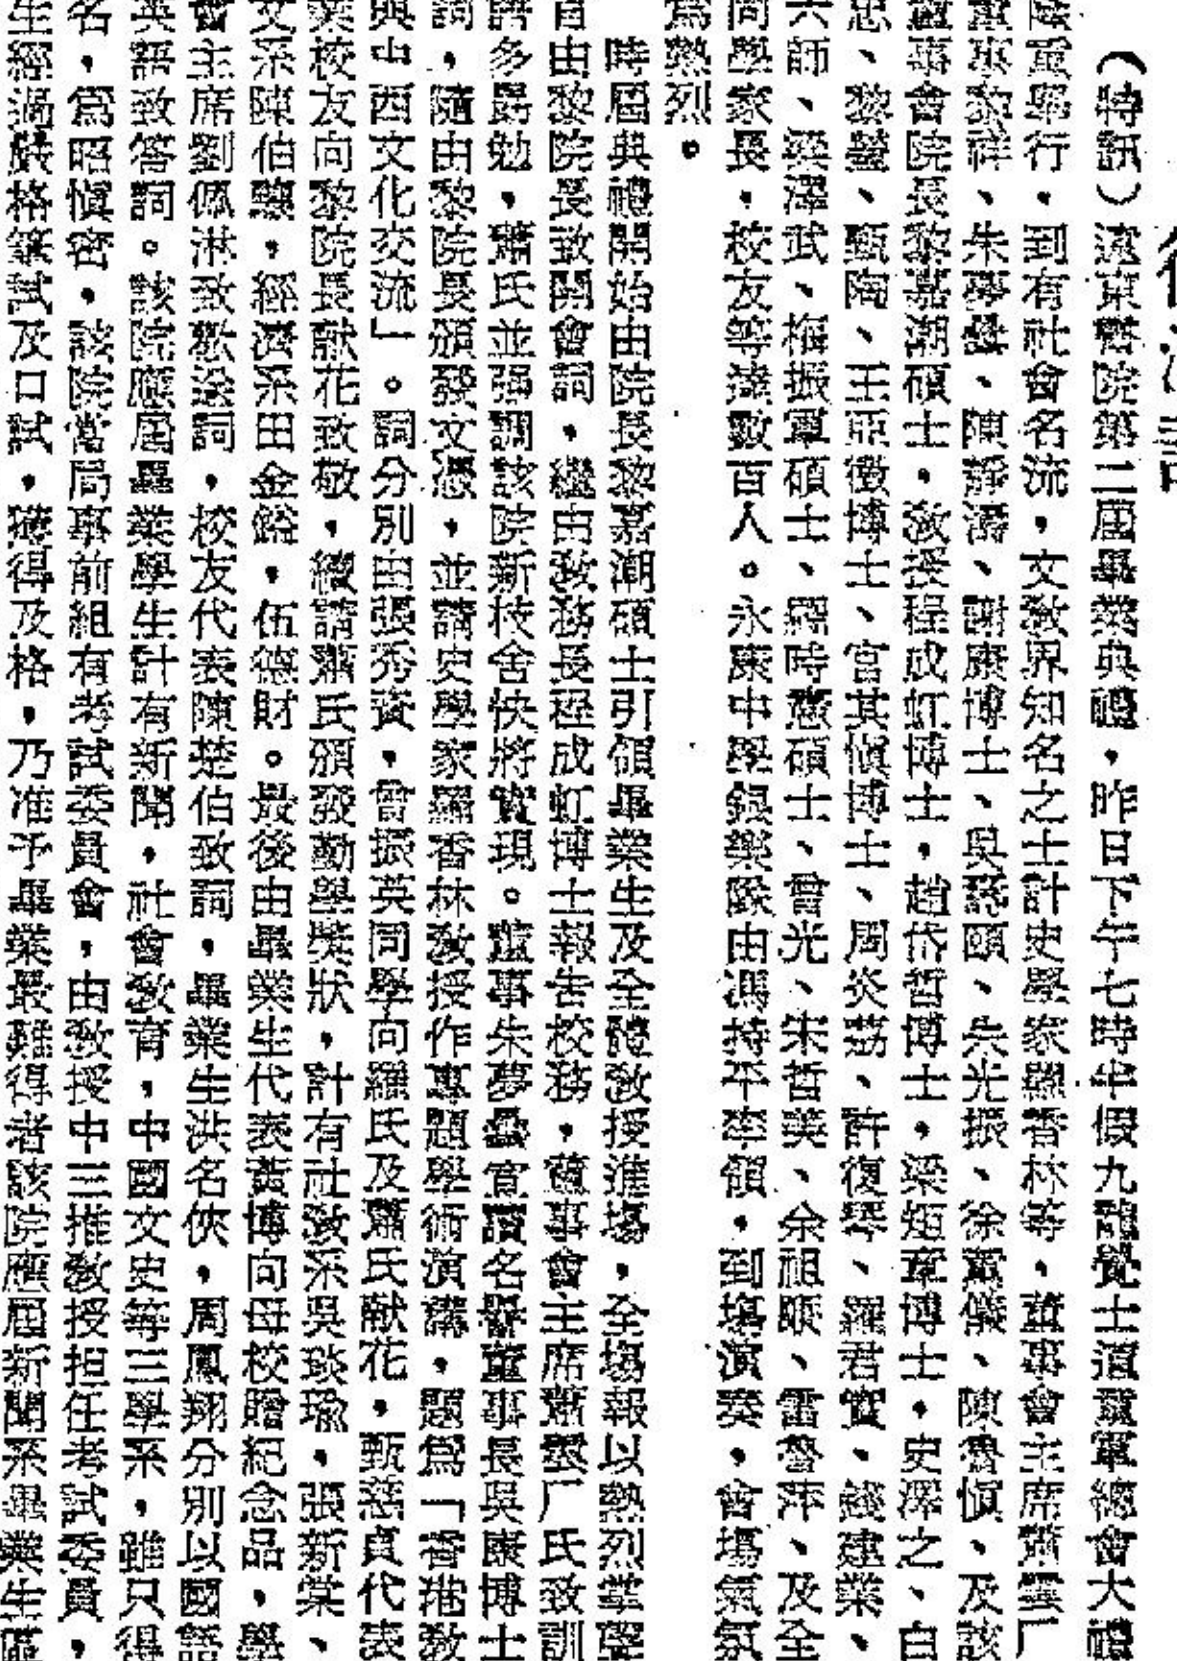 （特訊）遠東書院第二屆畢業典禮，昨日下午七時半假九龍覺士道童軍總會大禮
隆重舉行，到有社會名流，文敎界知名之士計史學家羅香林等，董事會主席蕭雲厂
董事黎祥、朱夢曇、陳靜濤、謝康博士、吳 頤、朱光振、徐 儀、陳魯愼、及該
董事會院長黎嘉潮碩士，敎授程成虹博士，趙岱哲博士，梁 章博士，史澤之、白
志、黎 、甄陶、王亞徵博士、宮其愼博士、周炎荔、許復琴、羅君實、錢建業、
六師、梁澤武、梅振軍碩士、羅時憲碩士、曾光、朱哲美、余祖順、雷 萍、及全
同學家長，校友等達數百人。永康中學銀樂隊由馮持平率領，到塲演奏，會場氣氛
爲熱烈。
時屆典禮開始由院長黎嘉潮碩士引領畢業生及全體敎授進塲，全塲報以熱烈掌聲
首由黎院長致開會詞，繼由敎務長程成虹博士報告校務，董事會主席蕭雲厂氏致訓
許多勗勉，蕭氏並强調該院新校舍快將實現。董事朱夢曇宣讀名譽董事長吳康博士
詞，隨由黎院長頒發文憑，並請史學家羅香林敎授作專題學術演講，題爲「香港敎
與中西文化交流」。詞分別由張秀資，曾振英同學向羅氏及蕭氏献花，甄慈貞代表
業校友向黎院長献花致敬，續請蕭氏頒發勤學獎狀，計有社敎系吳琰瑜，張新棠、
文系陳伯 ，經濟系田金 ，伍德財。最後由畢業生代表黃博向母校贈紀念品，學
會主席劉佩淋致歡送詞，校友代表陳楚伯致詞，畢業生洪名俠，周鳳翔分別以國語
英語致答詞。該院應屆畢業學生計有新聞，社會敎育，中國文史等三學系，雖只得
名，爲昭愼密，該院當局事前組有考試委員會，由敎授中三推敎授担任考試委員，
生經過嚴格筆試及口試，獲得及格，乃准予畢業最難得者該院應屆新聞系畢業生區